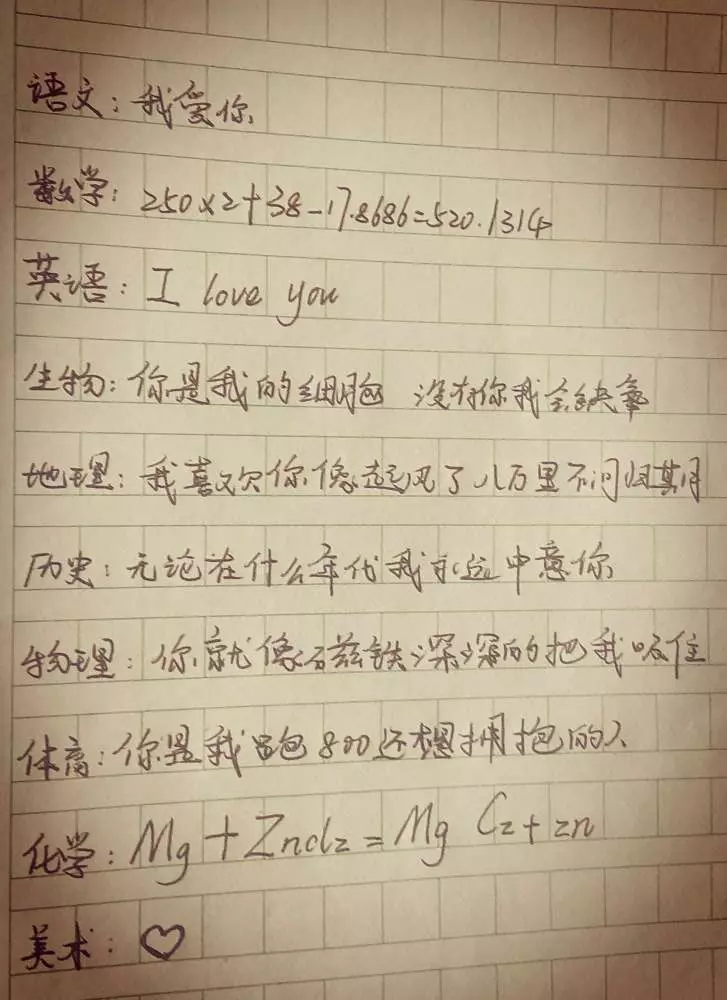 語文：我爱你
数学：250×2+38-17.8686=520.1314
英语：I love you
生物：你是我的细胞 没有你我会缺氧
地理：我喜欢你像起风了八万里不问归其月
历史：无论在什么年代我永远中意你
物理：你就像磁铁深深的把我吸住
体育：你是我跑800还想拥抱的人
化学：Mg+Zncl2=Mg C2+zn
美术：♡